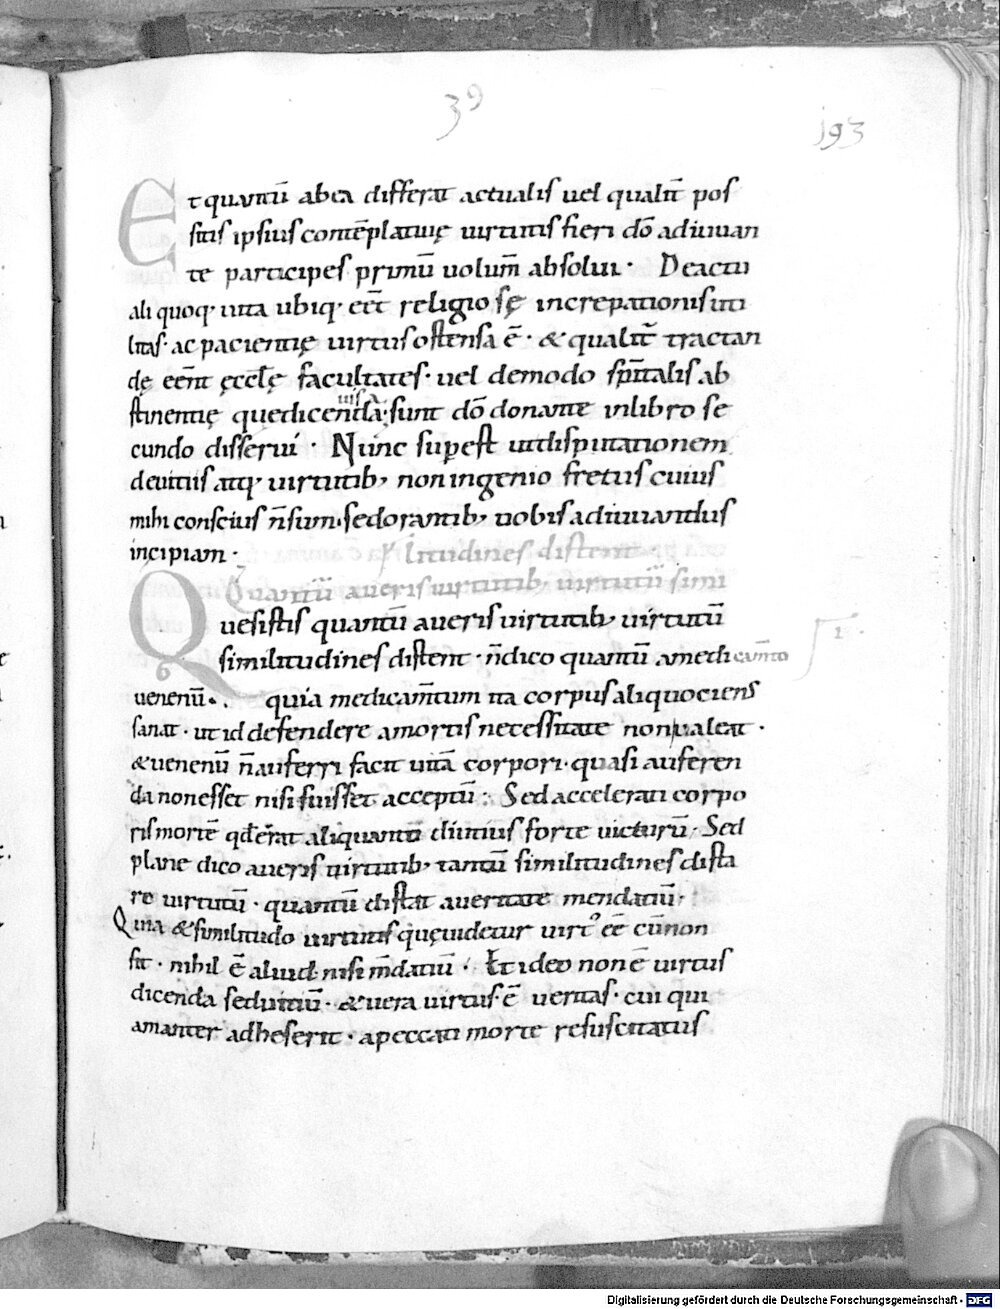 39
193
Et quantū ab ea differat actualis uel qualit̄ pos
sitis ipsius contēplatiuę uirtutis fieri dō adiuuan
te participes primū uolum̄ absolui · De actu
ali quoq· uita ubiq· eēt religiosę increpationis uti
litas · ac pacientię uirtus ostensa ē · & qualit̄ tractan
dę eēnt ęcclę facultates · uel de modo sp̄italis ab
stinentię que dicenda uisa sunt dō donante in libro se
cundo disserui · Nunc supest ut disputationem
de uitiis atq· uirtutib; non ingenio fretus cuius
mihi conscius n̄ sum · sed orantib; uobis adiuuandus
incipiam · litudines distent ·
Quantū a ueris uirtutib; uirtutū simi
Quesistis quantū a ueris uirtutib; uirtutū
similitudines distent · n̄ dico quantū a medicam̄to I ·
uenenū · quia medicam̄tum ita corpus aliquociens
sanat · ut id defendere a mortis necessitate non ualeat ·
& uenenū n̄ auferri facit uitā corpori · quasi auferen
da non esset nisi fuisset acceptū · Sed accelerati corpo
ris mortē qd erat aliquantū diutius forte uicturū · Sed
plane dico a ueris uirtutib; tantū similitudines dista
re uirtutū · quantū distat a ueritate mendatiū ·
Quia & similitudo uirtutis quę uidetur uirt᾿ eē cū non
sit · nihil ē aliud nisi m̄datiū · Et ideo non ē uirtus
dicenda sed uitiū · & uera uirtus ē ueritas · cui qui
amanter adheserit · a peccati morte resuscitatus
Digitalisierung gefördert durch die Deutsche Forschungsgemeinschaft - DFG